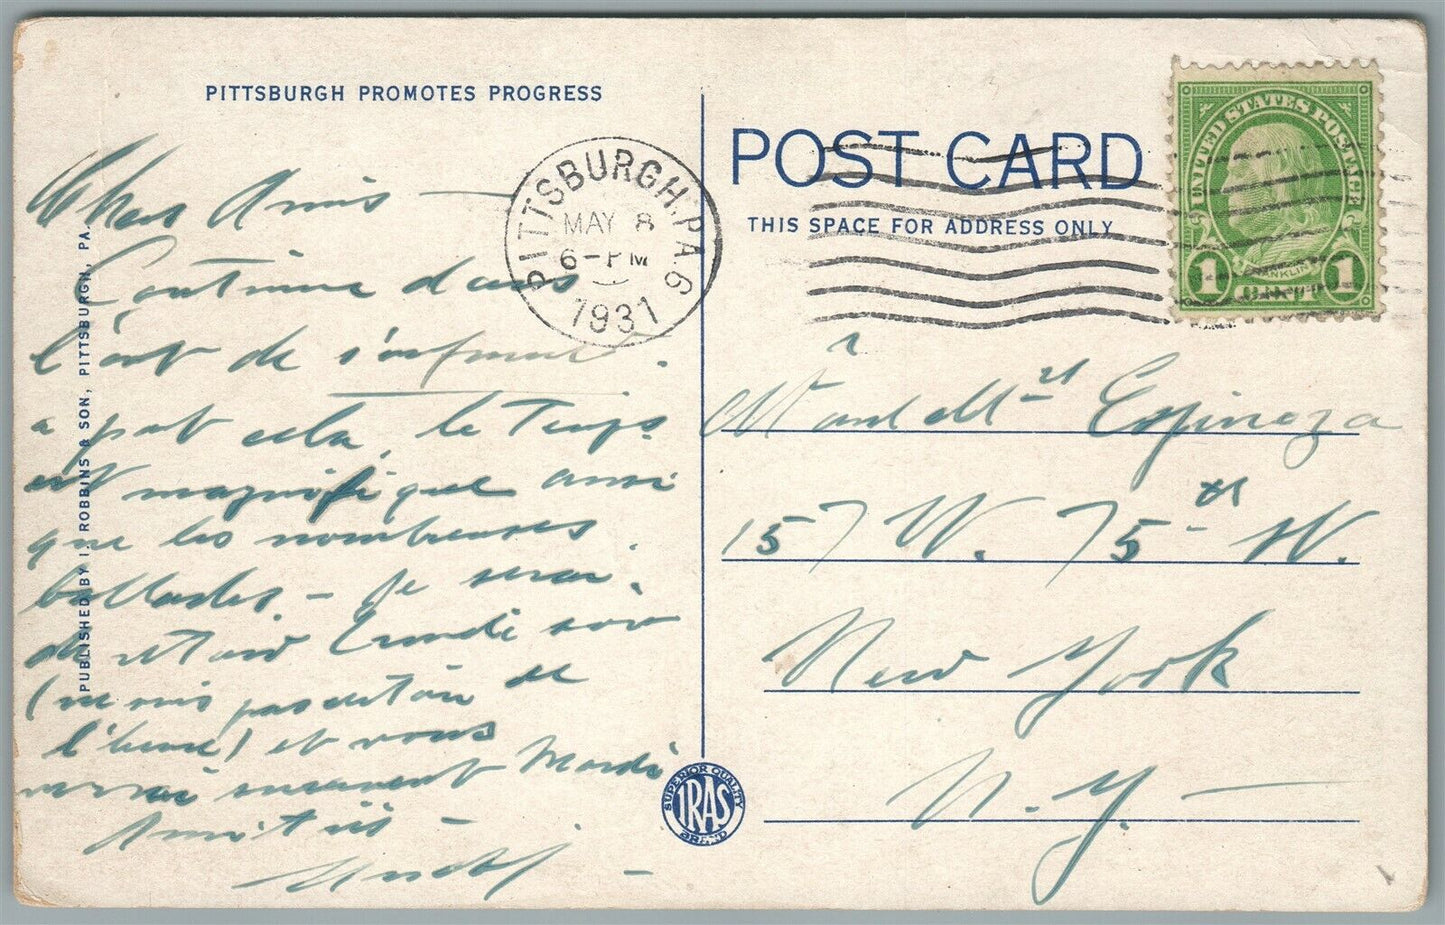 PITTSBURGH PROMOTES PROGRESS
POST CARD
THIS SPACE FOR ADDRESS ONLY
PITTSBURGH, PA 6
MAY 8
6-PM
1931
UNITED STATES POSTAGE
FRANKLIN
1 CENT 1
Chers Amis —
Continue dans
l'art de
a part cela, le Temps
est magnifique ainsi
que les nombreuses
ballades — Je serai
de retour Lundi soir
(mais pas certain de
l'heure) et vous
verrai surement Mardi
Amitiés —
M and Mrs Espinoza
157 W. 75th
New York
N. Y. —
PUBLISHED BY I. ROBBINS & SON, PITTSBURGH, PA.
SUPERIOR QUALITY
IRAS
BRAND